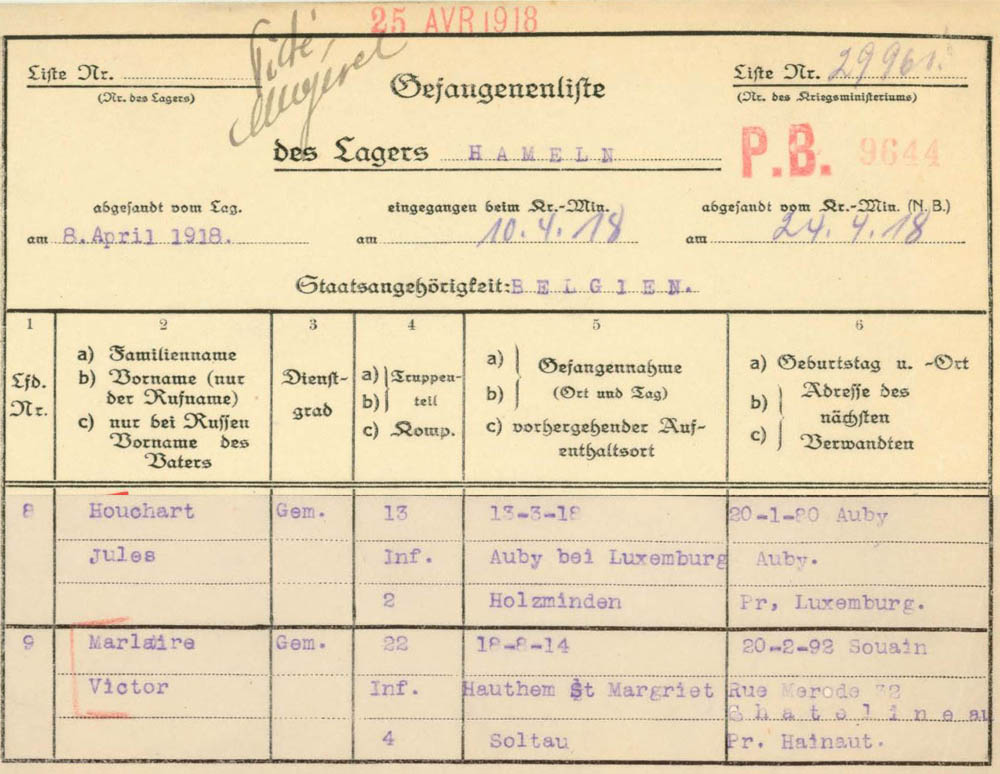 25 AVR 1918
Liste Nr.
(Nr. des Lagers)
Gefangenenliste
Liste Nr. 29961.
(Nr. des Kriegsministeriums)
des Lagers HAMELN
P.B. 9644
abgesandt vom Lag.
am 8.April 1918.
eingegangen beim Kr.-Min.
am 10.4.18
abgesandt vom Kr.-Min. (N.B.)
am 24.4.18
Staatsangehörigkeit: BELGIEN.
1 2 3 4 5 6
Lfd. Nr.
a) Familienname
b) Vorname (nur
der Rufname)
c) nur bei Russen
Vorname des
Vaters
Dienst-
grad
a) Truppen-
b) teil
c) Komp.
a) Gefangennahme
b) (Ort und Tag)
c) vorhergehender Auf-
enthaltsort
a) Geburtstag u. -Ort
b) Adresse des
nächsten
c) Verwandten
8 Houchart Gem. 13 13-3-18 20-1-80 Auby
Jules Inf. Auby bei Luxemburg Auby.
2 Holzminden Pr, Luxemburg.
9 Marlaire Gem. 22 18-8-14 20-2-92 Souain
Victor Inf. Hauthem St Margriet Rue Merode 32
Chatelineau
4 Soltau Pr. Hainaut.